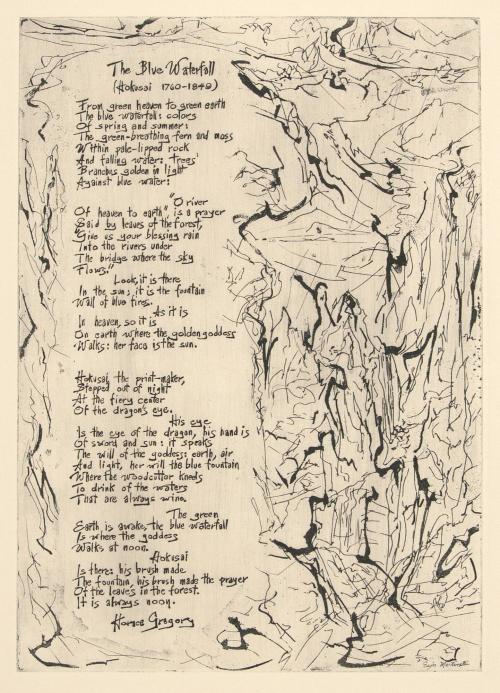 The Blue Waterfall
(Hokusai 1760-1849)
From green heaven to green earth
The blue waterfall: colors
Of spring and summer:
The green-breathing fern and moss
Within pale-lipped rock
And falling water: Trees'
Branches golden in light
Against blue water:
"O river
Of heaven to earth", is a prayer
Said by leaves of the forest,
"Give us your blessing rain
Into the rivers under
The bridge where the sky
Flows."
Look, it is there
In the sun; it is the fountain
Wall of blue fires.
As it is
In heaven, so it is
On earth where the golden goddess
Walks: her face is the sun.
Hokusai, the print-maker,
Stepped out of night
At the fiery center
Of the dragon's eye.
His eye
Is the eye of the dragon, his hand is
Of sword and sun: it speaks
The will of the goddess: earth, air
And light, her will the blue fountain
Where the woodcutter kneels
To drink of the waters
That are always wine.
The green
Earth is awake, the blue waterfall
Is where the goddess
Walks at noon.
Hokusai
Is there: his brush made
The fountain, his brush made the prayer
Of the leaves in the forest.
It is always noon.
Horace Gregory